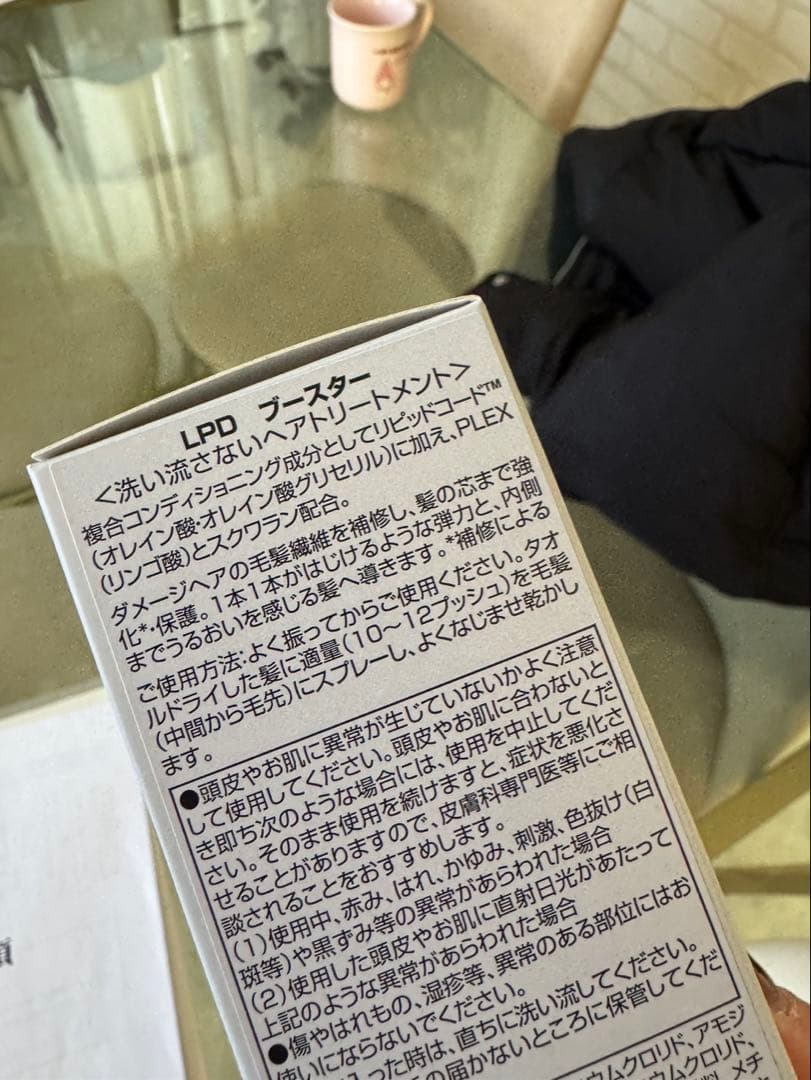 LPD ブースター
<洗い流さないヘアトリートメント>
複合コンディショニング成分としてリピッドコード™
(オレイン酸・オレイン酸グリセリル)に加え、PLEX
(リンゴ酸)とスクワラン配合。
ダメージヘアの毛髪繊維を補修し、髪の芯まで強
化*・保護。1本1本がはじけるような弾力と、内側
までうるおいを感じる髪へ導きます。*補修による
ご使用方法:よく振ってからご使用ください。タオ
ルドライした髪に適量(10〜12プッシュ)を毛髪
(中間から毛先)にスプレーし、よくなじませ乾かし
ます。
●頭皮やお肌に異常が生じていないかよく注意
して使用してください。頭皮やお肌に合わないと
き即ち次のような場合には、使用を中止してくだ
さい。そのまま使用を続けますと、症状を悪化さ
せることがありますので、皮膚科専門医等にご相
談されることをおすすめします。
(1)使用中、赤み、はれ、かゆみ、刺激、色抜け(白
斑等)や黒ずみ等の異常があらわれた場合
(2)使用した頭皮やお肌に直射日光があたって
上記のような異常があらわれた場合
●傷やはれもの、湿疹等、異常のある部位にはお
使いにならないでください。
入った時は、直ちに洗い流してください。
の届かないところに保管してくだ
ウムクロリド、アモジ
ウムクロリド、
メチ